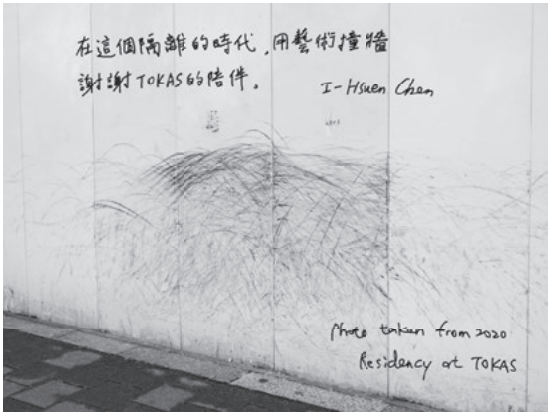 在這個隔離的時代,用藝術撞牆
謝謝TOKAS的陪伴。
I-Hsuen Chen
Photo taken from 2020
Residency at TOKAS